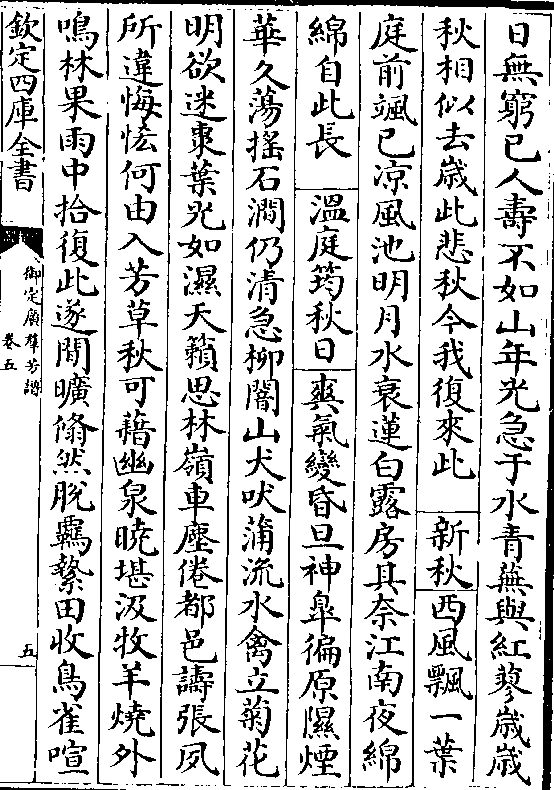 日無窮已人壽不如山年光急于水青蕪與紅蓼歲歲
秋相似去歲此悲秋今我復來此　新秋西風飄一葉
庭前颯已凉風池明月水衰蓮白露房其奈江南夜綿
綿自此長　溫庭筠秋日爽氣變昏旦神臯徧原隰煙
華久蕩揺石澗仍清急柳闇山犬吠蒲流水禽立菊花
明欲迷棗葉光如濕天籟思林嶺車塵倦都邑譸張夙
所違悔恡何由入芳草秋可藉幽泉曉堪汲牧羊燒外
鳴林果雨中拾復此遂閒曠翛然脫羈縶田收鳥雀喧
欽定四庫全書
御定廣羣芳譜
卷五
五